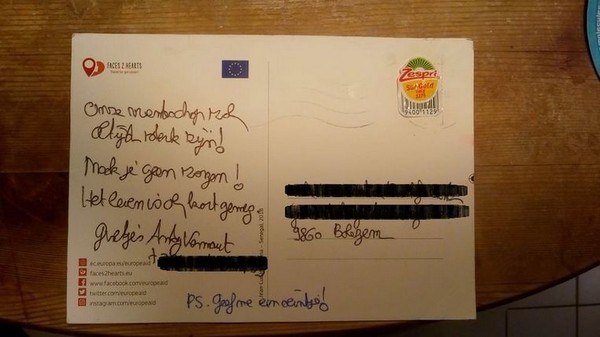 FACES 2 HEARTS
Onze vriendschap zal
altijd sterk zijn!
Maak je geen zorgen!
Het leven is al kort genoeg
Groetjes
ec.europa.eu/europeaid
faces2hearts.eu
www.facebook.com/europeaid
twitter.com/europeaid
instagram.com/europeaid
Senegal, 2018
PS. Geef me een seintje!
Zespri
SunGold
9400 1129
9860 Balegem